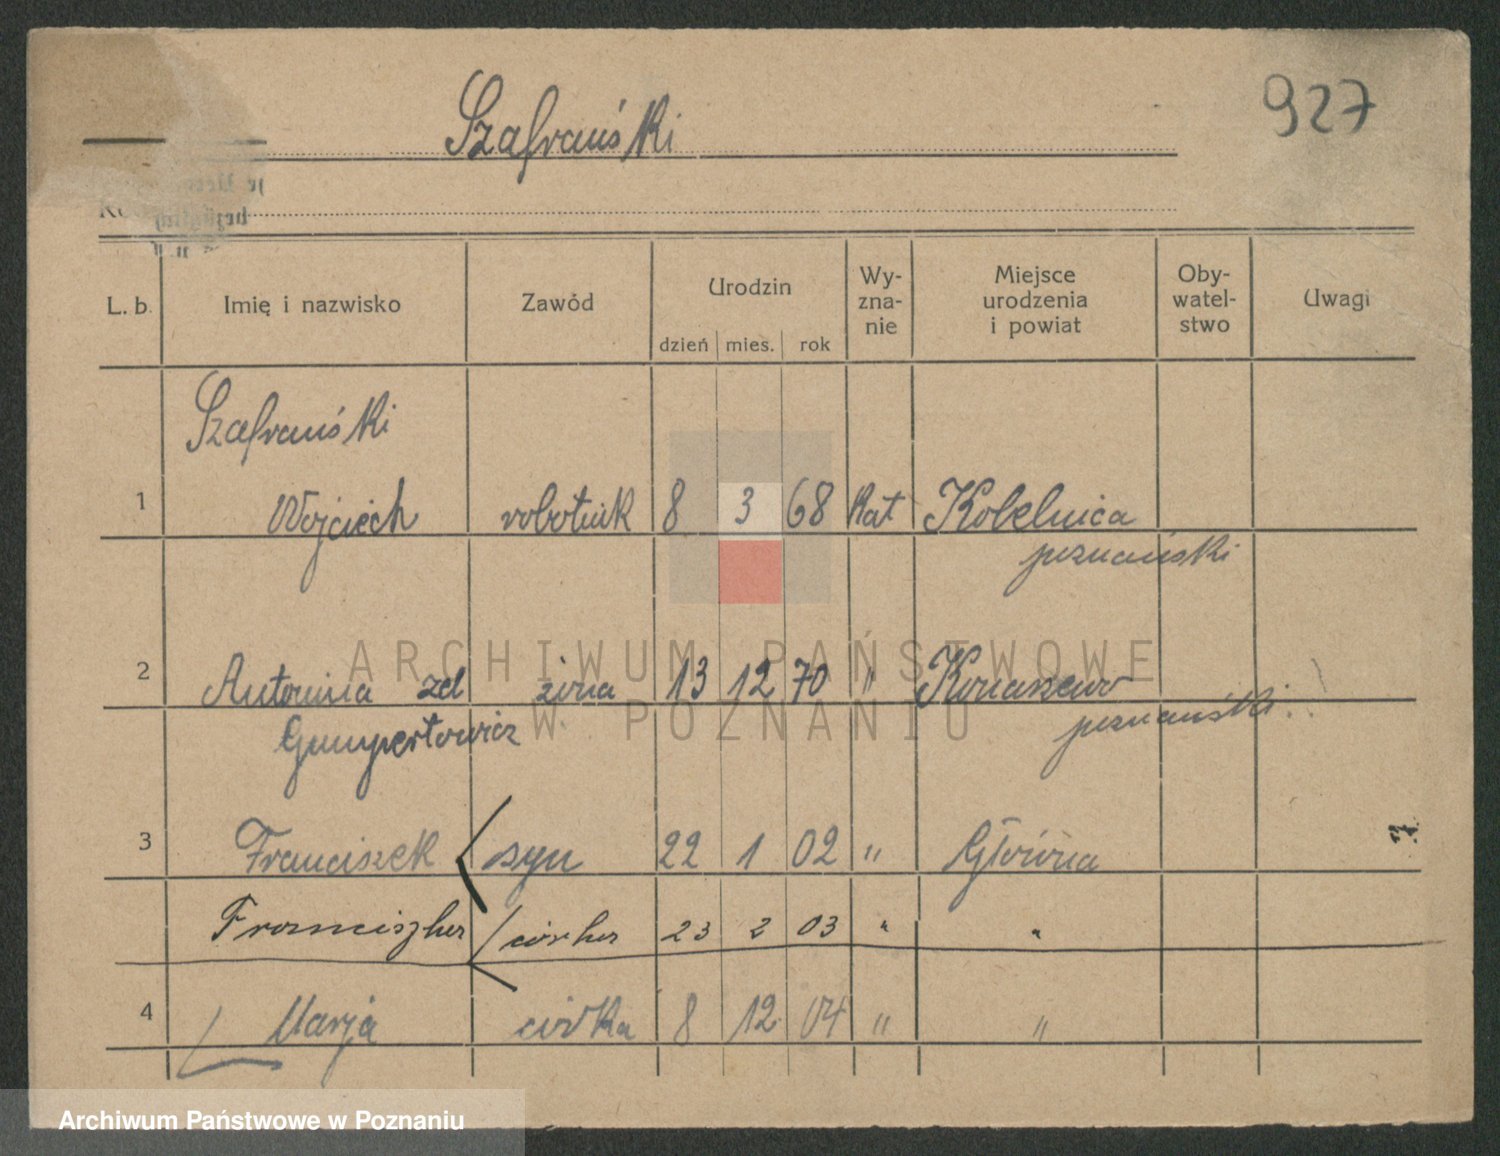 927
Szafrański
L. b.
Imię i nazwisko
Zawód
Urodzin
dzień mies. rok
Wy-
zna-
nie
Miejsce
urodzenia
i powiat
Oby-
watel-
stwo
Uwagi
Szafrański
1 Wojciech robotnik 8 3 68 Kat Kobelnica
poznański
2 Antonina zd żona 13 12 70 " Konarzewo
Gumpertowicz poznański
3 Franciszek syn 22 1 02 " Główna
Franciszka córka 23 2 03 " "
4 Marja córka 8 12 04 " "
ARCHIWUM PAŃSTWOWE
W POZNANIU
Archiwum Państwowe w Poznaniu